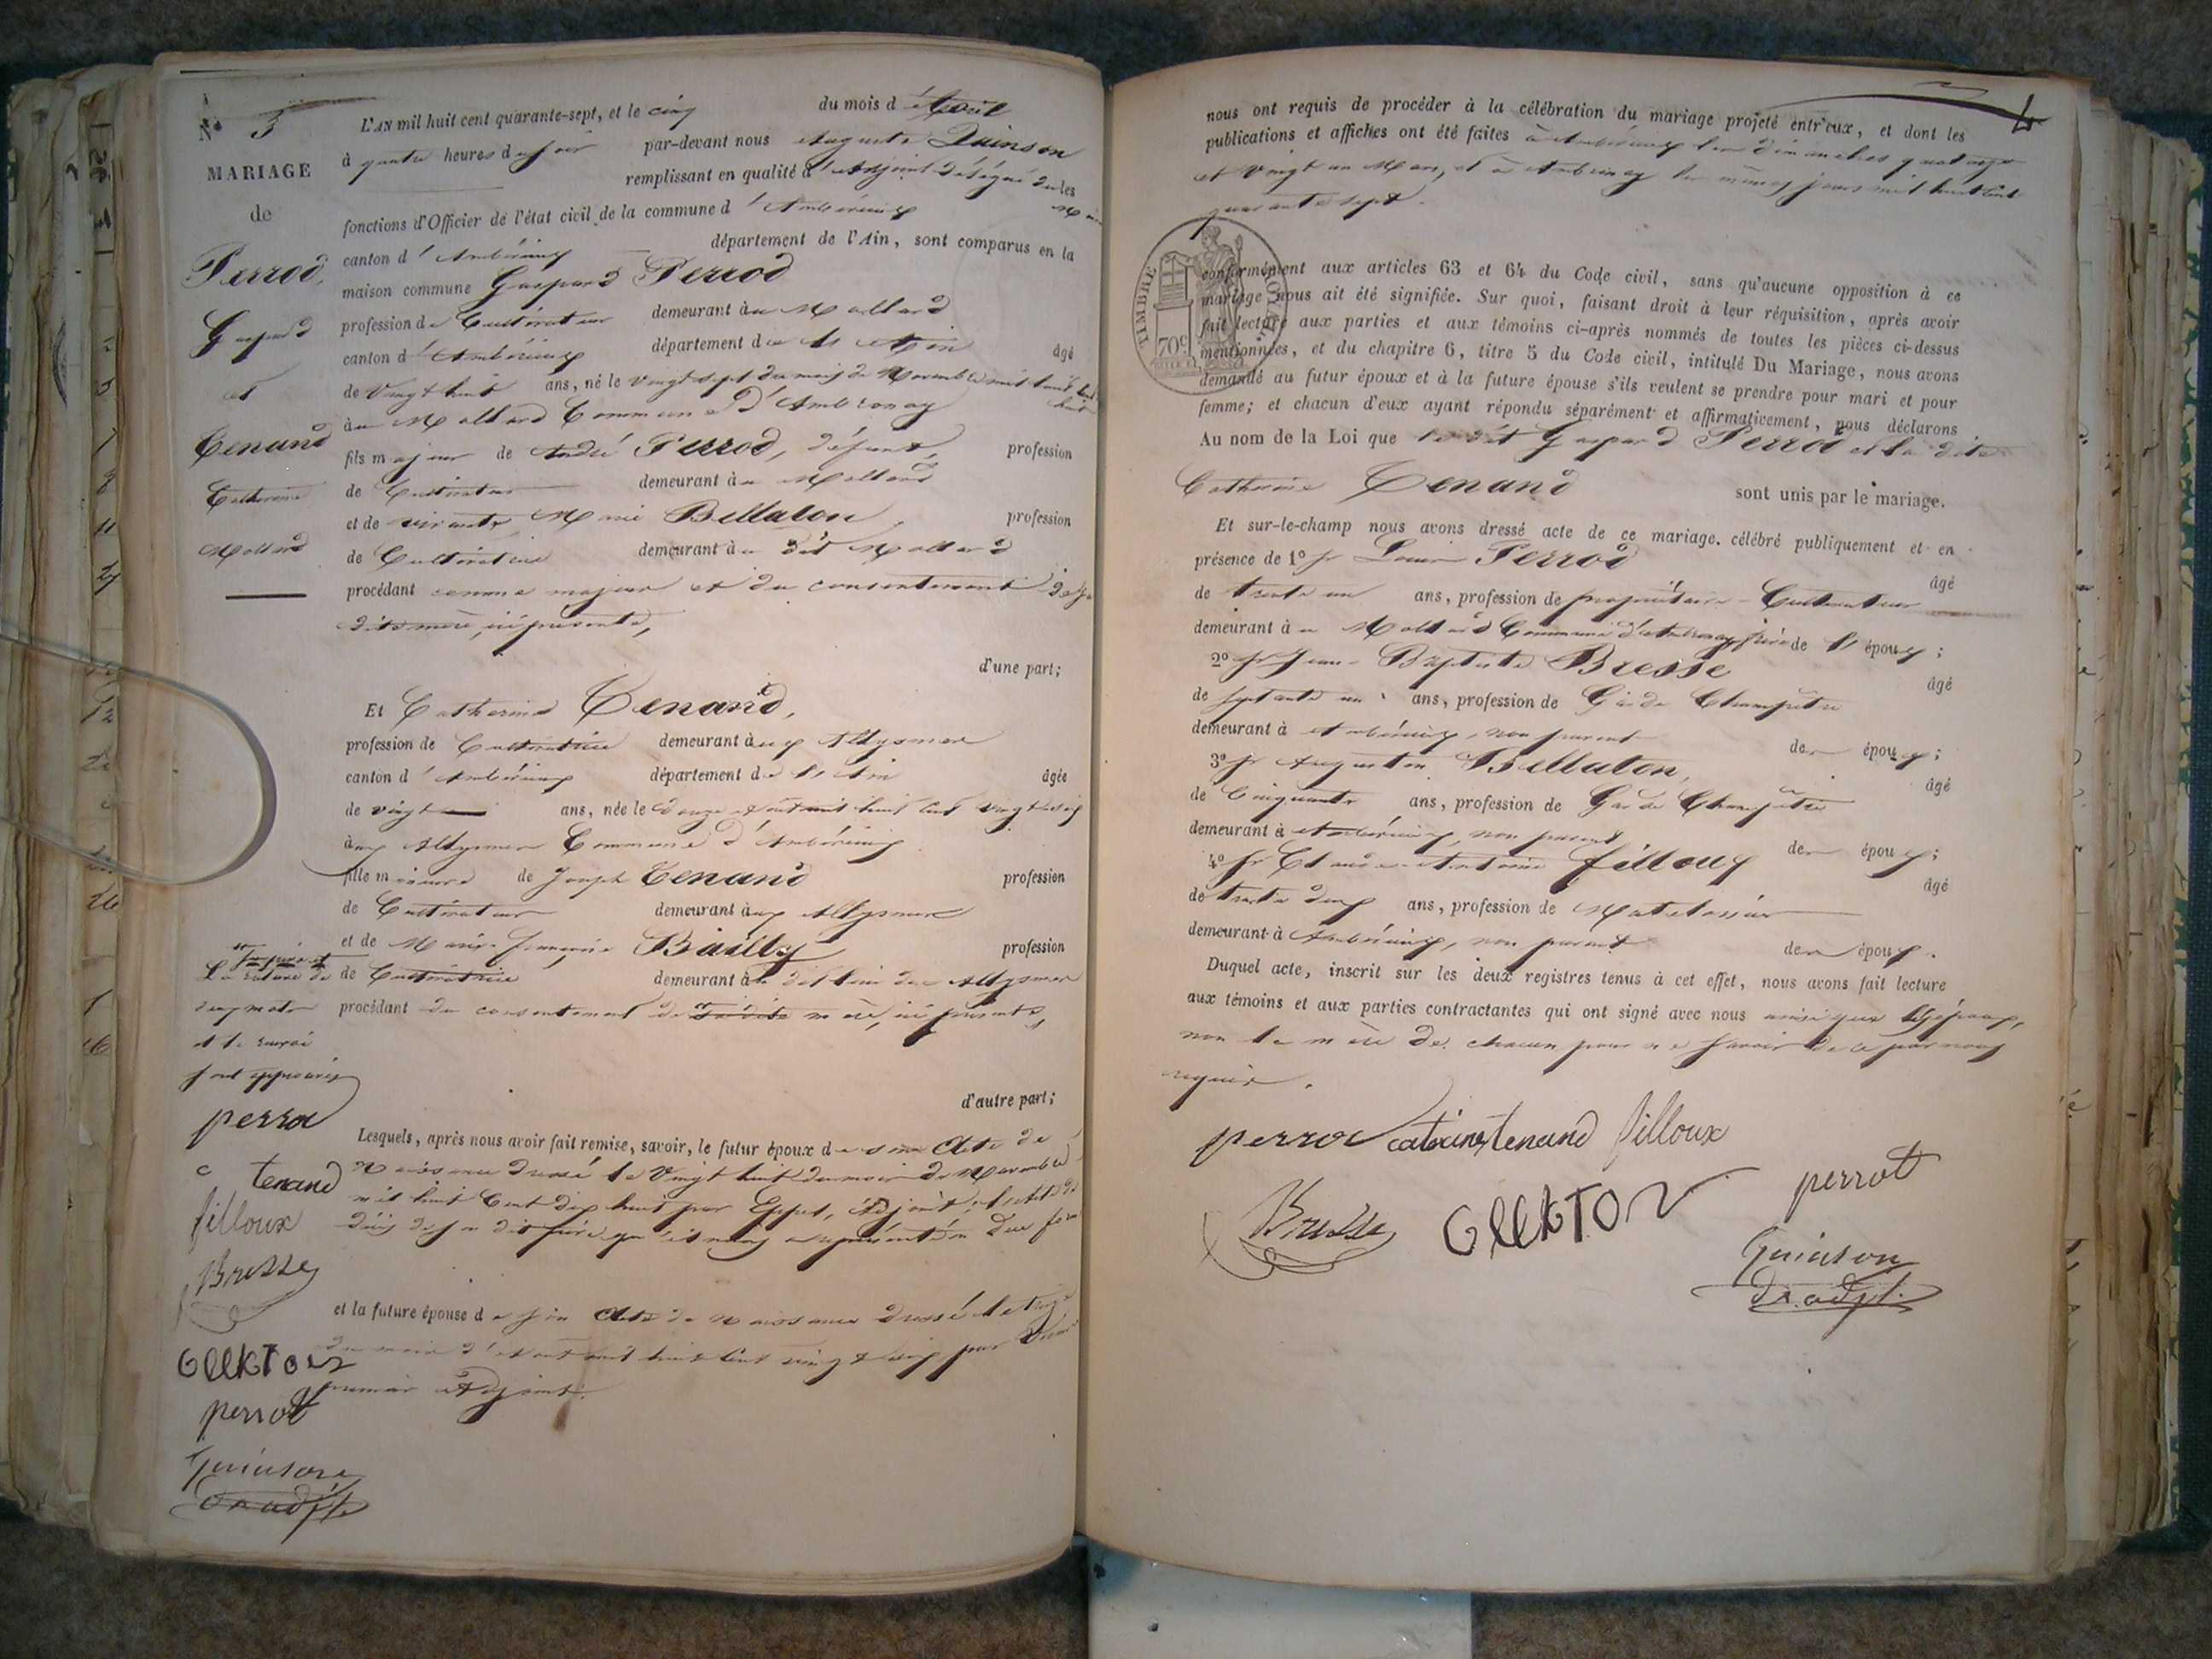 N° 3
MARIAGE
de
Perrod,
Gaspard
et
Tenand
Catherine
Mollard
L'AN mil huit cent quarante-sept, et le cinq du mois d'Avril
à quatre heures du soir par-devant nous Auguste Quinson
remplissant en qualité d'Adjoint délégué les
fonctions d'Officier de l'état civil de la commune d'Ambérieux
canton d'Ambérieux département de l'Ain, sont comparus en la
maison commune Gaspard Perrod
profession de Cultivateur demeurant au Mollard
canton d'Ambérieux département de l'Ain âgé
de Vingt huit ans, né le vingt sept du mois de Novembre mil huit cent dix huit
au Mollard Commune d'Ambronay
fils majeur de André Perrod, défunt, profession
de Cultivateur demeurant au Mollard
et de vivante Marie Bellaton, profession
de Cultivatrice demeurant au dit Mollard
procédant comme majeur et du consentement de sa
dite mère, ici présente,
d'une part;
Et Catherine Tenand,
profession de Cultivatrice demeurant aux Allymes
canton d'Ambérieux département de l'Ain âgée
de vingt ans, née le douze Août mil huit cent vingt six
aux Allymes Commune d'Ambérieux
fille mineure de Joseph Tenand profession
de Cultivateur demeurant aux Allymes
et de Marie-Françoise Bailly profession
de Cultivatrice demeurant au dit lieu des Allymes
procédant du consentement de sa dite mère, ici présente,
La rature de
deux mots
et le renvoi
sont approuvés
d'autre part;
Lesquels, après nous avoir fait remise, savoir, le futur époux de son Acte de
Naissance dressé le Vingt huit du mois de Novembre
mil huit Cent dix huit par Adjoint; l'acte de
décès de son dit père
et la future épouse de son Acte de Naissance dressé le treize
du mois d'Août mil huit cent vingt six par
premier Adjoint.
perrod
c tenand
filloux
Bresse
perrot
Quinson
dn adjt
4
nous ont requis de procéder à la célébration du mariage projeté entr'eux, et dont les
publications et affiches ont été faites à Ambérieux les dimanches quatorze
et Vingt un Mars, et à Ambronay les mêmes jours mil huit cent
quarante sept.
TIMBRE ROYAL
70c
conformément aux articles 63 et 64 du Code civil, sans qu'aucune opposition à ce
mariage nous ait été signifiée. Sur quoi, faisant droit à leur réquisition, après avoir
fait lecture aux parties et aux témoins ci-après nommés de toutes les pièces ci-dessus
mentionnées, et du chapitre 6, titre 5 du Code civil, intitulé Du Mariage, nous avons
demandé au futur époux et à la future épouse s'ils veulent se prendre pour mari et pour
femme; et chacun d'eux ayant répondu séparément et affirmativement, nous déclarons
Au nom de la Loi que le dit Gaspard Perrod et la dite
Catherine Tenand sont unis par le mariage.
Et sur-le-champ nous avons dressé acte de ce mariage. célébré publiquement et en
présence de 1° Sr Louis Perrod âgé
de trente un ans, profession de propriétaire-Cultivateur
demeurant au Mollard Commune d'Ambronay, frère de l'époux;
2° Sr Jean-Baptiste Bresse âgé
de septante un ans, profession de Garde Champêtre
demeurant à Ambérieux, non parent des époux;
3° Sr Augustin Bellaton, âgé
de Cinquante ans, profession de Garde Champêtre
demeurant à Ambérieux, non parent des époux;
4° Sr Claude-Antoine filloux âgé
de trente deux ans, profession de Matelassier
demeurant à Ambérieux, non parent des époux.
Duquel acte, inscrit sur les deux registres tenus à cet effet, nous avons fait lecture
aux témoins et aux parties contractantes qui ont signé avec nous ainsi que les époux,
non la mère de chacun pour ne savoir de ce par nous
requis.
perrod catherine tenand filloux
Bresse perrot
Quinson
dn. adjt.